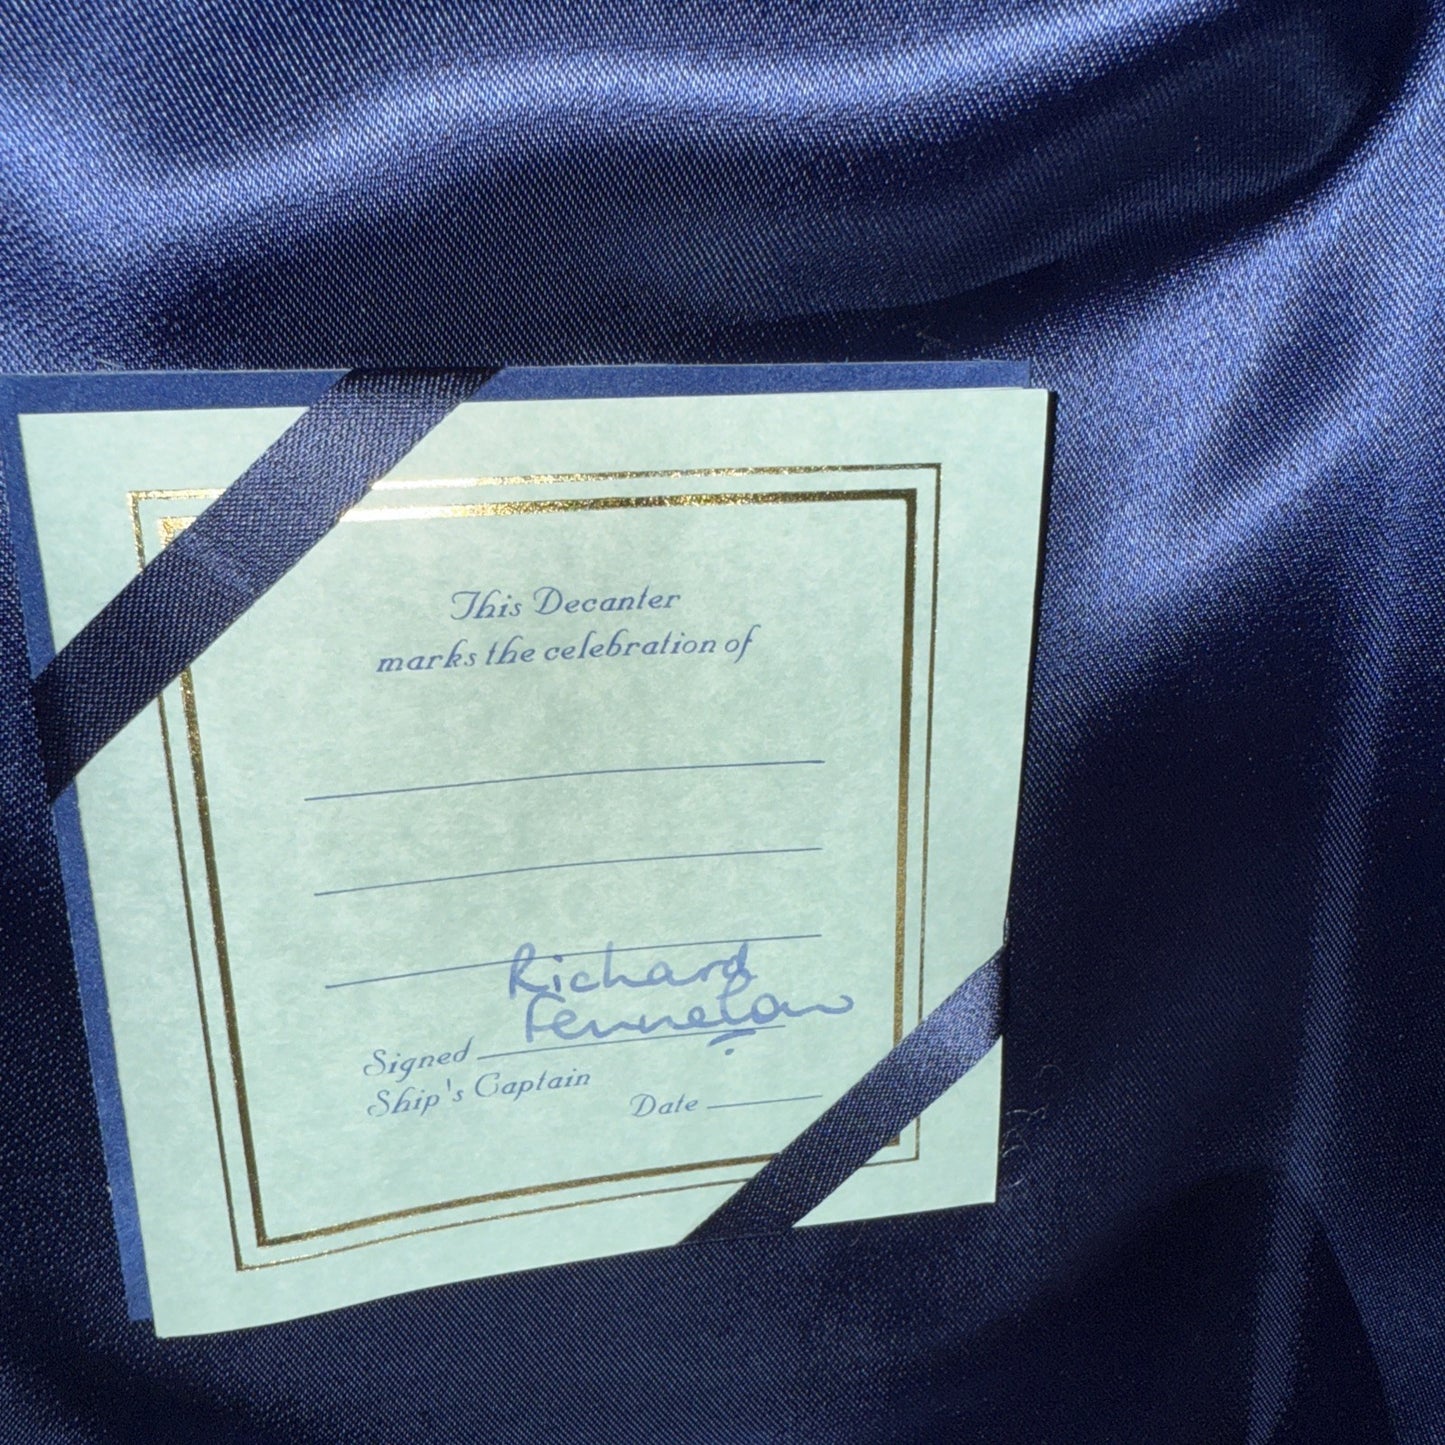 This Decanter
marks the celebration of
Richard
Fennelow
Signed
Ship's Captain
Date